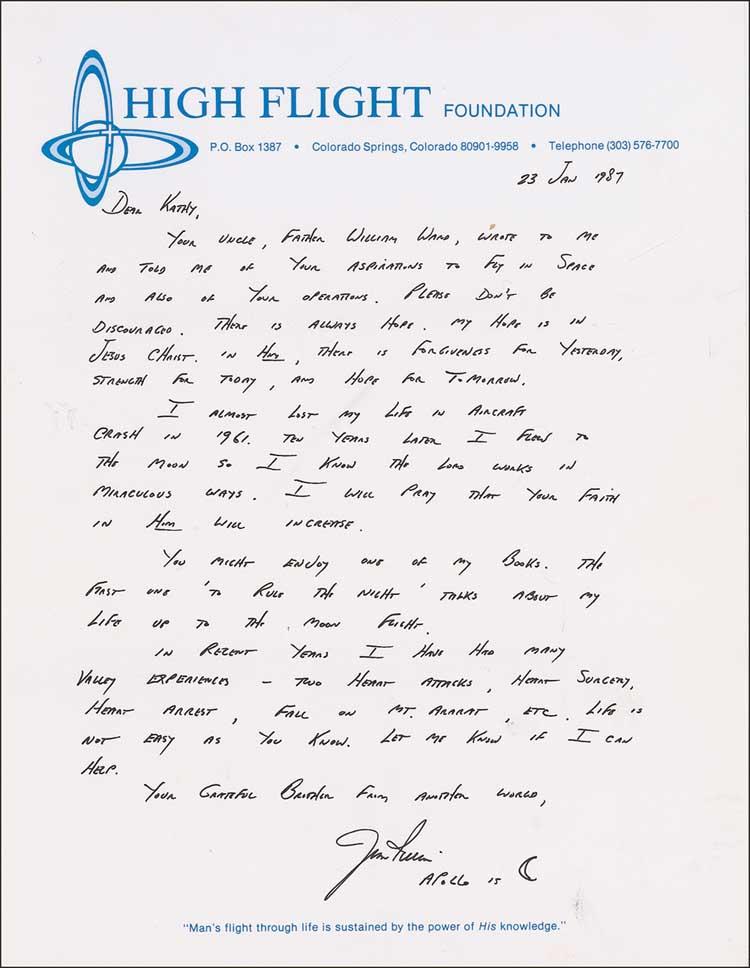 HIGH FLIGHT FOUNDATION
P.O. Box 1387 • Colorado Springs, Colorado 80901-9958 • Telephone (303) 576-7700
23 JAN 1987
DEAR KATHY,
YOUR UNCLE, FATHER WILLIAM WARD, WROTE TO ME
AND TOLD ME OF YOUR ASPIRATIONS TO FLY IN SPACE
AND ALSO OF YOUR OPERATIONS. PLEASE DON'T BE
DISCOURAGED. THERE IS ALWAYS HOPE. MY HOPE IS IN
JESUS CHRIST. IN HIM, THERE IS FORGIVENESS FOR YESTERDAY,
STRENGTH FOR TODAY, AND HOPE FOR TOMORROW.
I ALMOST LOST MY LIFE IN AIRCRAFT
CRASH IN 1961. TEN YEARS LATER I FLEW TO
THE MOON SO I KNOW THE LORD WORKS IN
MIRACULOUS WAYS. I WILL PRAY THAT YOUR FAITH
IN HIM WILL INCREASE.
YOU MIGHT ENJOY ONE OF MY BOOKS. THE
FIRST ONE 'TO RULE THE NIGHT' TALKS ABOUT MY
LIFE UP TO THE MOON FLIGHT.
IN RECENT YEARS I HAVE HAD MANY
VALLEY EXPERIENCES - TWO HEART ATTACKS, HEART SURGERY,
HEART ARREST, FALL ON MT. ARARAT, ETC. LIFE IS
NOT EASY AS YOU KNOW. LET ME KNOW IF I CAN
HELP.
YOUR GRATEFUL BROTHER FROM ANOTHER WORLD,
Jim Irwin
APOLLO 15
"Man's flight through life is sustained by the power of His knowledge."